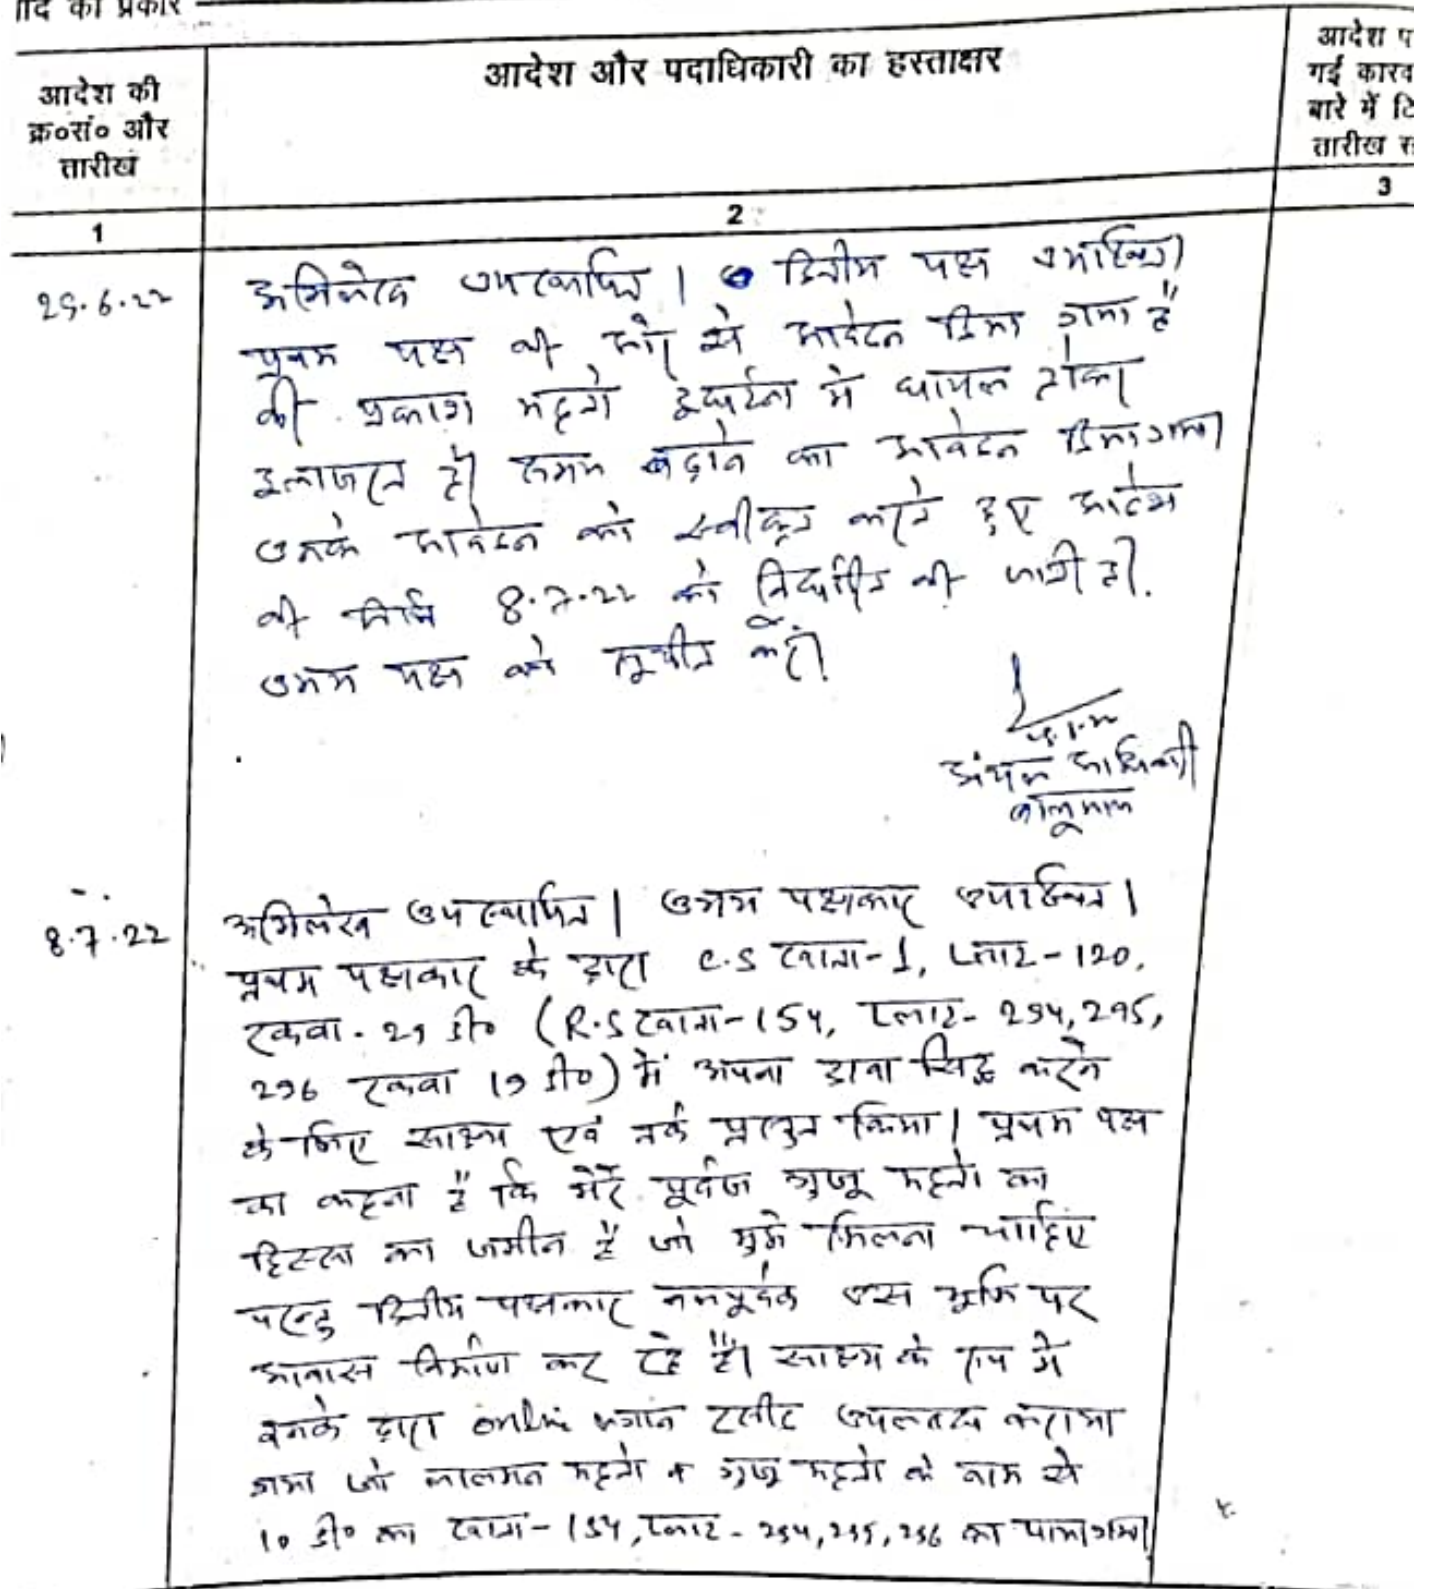 ादि का प्रकार
आदेश की
क्र०सं० और
तारीख
आदेश और पदाधिकारी का हस्ताक्षर
आदेश प
गई कारव
बारे में टि
तारीख स
1
2
3
29.6.22
अभिलेख उपस्थापित। द्वितीय पक्ष उपस्थित।
प्रथम पक्ष की ओर से आवेदन दिया गया है
की प्रकाश महतो दुर्घटना में घायल होकर
इलाजरत है। समय बढ़ाने का आवेदन दिया गया।
उनके आवेदन को स्वीकृत करते हुए आदेश
की तिथि 8.7.22 को निर्धारित की जाती है।
उभय पक्ष को सूचीत करें।
अंचल अधिकारी
8.7.22
अभिलेख उपस्थापित। उभय पक्षकार उपस्थित।
प्रथम पक्षकार के द्वारा C.S खाता-1, प्लाट-120,
रकवा-29 डी० (R.S खाता-154, प्लाट-294, 295,
296 रकवा 19 डी०) में अपना दावा सिद्ध करने
के लिए साक्ष्य एवं तर्क प्रस्तुत किया। प्रथम पक्ष
का कहना है कि मेरे पूर्वज भुजू महतो का
हिस्सा का जमीन है जो मुझे मिलना चाहिए
परन्तु द्वितीय पक्षकार बलपूर्वक उस भूमि पर
आवास निर्माण कर रहे हैं। साक्ष्य के रूप में
इनके द्वारा online लगान रसीद उपलब्ध कराया
गया जो लालमन महतो व भुजू महतो के नाम से
10 डी० का खाता-154, प्लाट-294, 295, 296 का पाया गया।